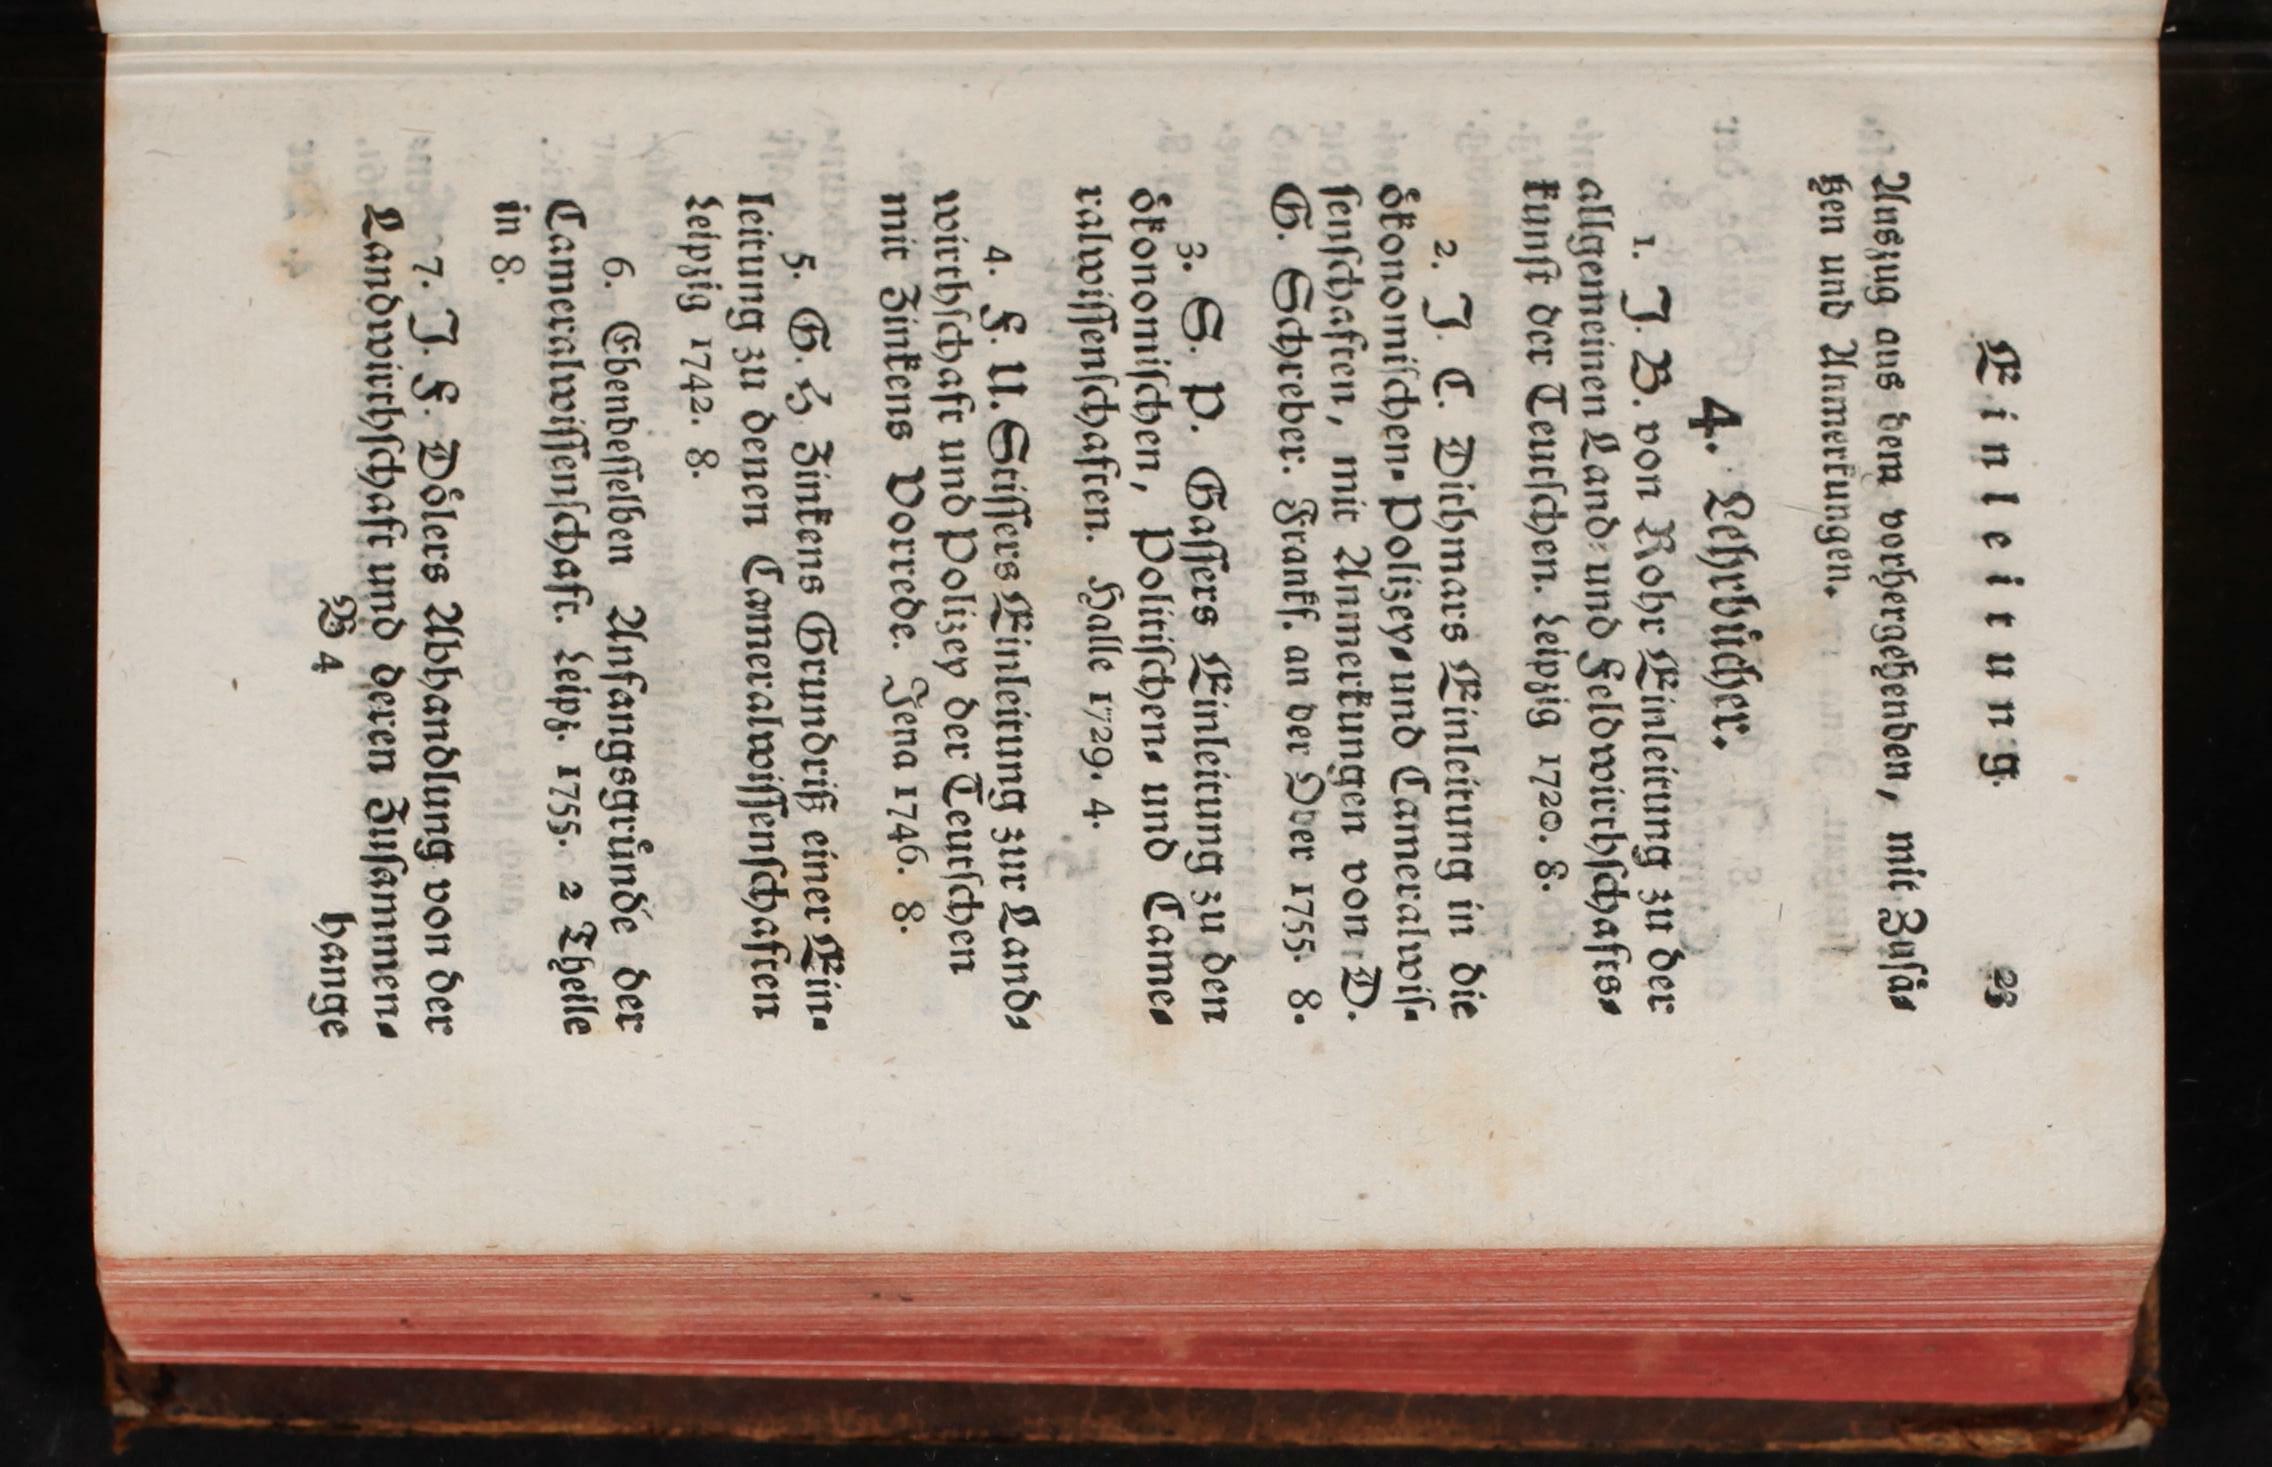 Einleitung. 23
Auszug aus dem vorhergehenden, mit Zusä⸗
tzen und Anmerkungen.
4. Lehrbücher.
1. J. B. von Rohr Einleitung zu der
allgemeinen Land⸗und Feldwirthschafts⸗
kunst der Teutschen. Leipzig 1720. 8.
2. J. C. Dithmars Einleitung in die
ökonomischen⸗Polizey⸗und Cameralwis⸗
senschaften, mit Anmerkungen von D.
G. Schreber. Frankf. an der Oder 1755. 8.
3. S. P. Gassers Einleitung zu den
ökonomischen, Politischen⸗ und Came⸗
ralwissenschaften. Halle 1729. 4.
4. F. U. Stissers Einleitung zur Land⸗
wirthschaft und Polizey der Teutschen
mit Zinkens Vorrede. Jena 1746. 8.
5. G. H. Zinkens Grundriß einer Ein⸗
leitung zu denen Cameralwissenschaften
Leipzig 1742. 8.
6. Ebendesselben Anfangsgründe der
Cameralwissenschaft. Leipz. 1755. 2 Theile
in 8.
7. J. F. Dölers Abhandlung von der
Landwirthschaft und deren Zusammen⸗
B 4 hange